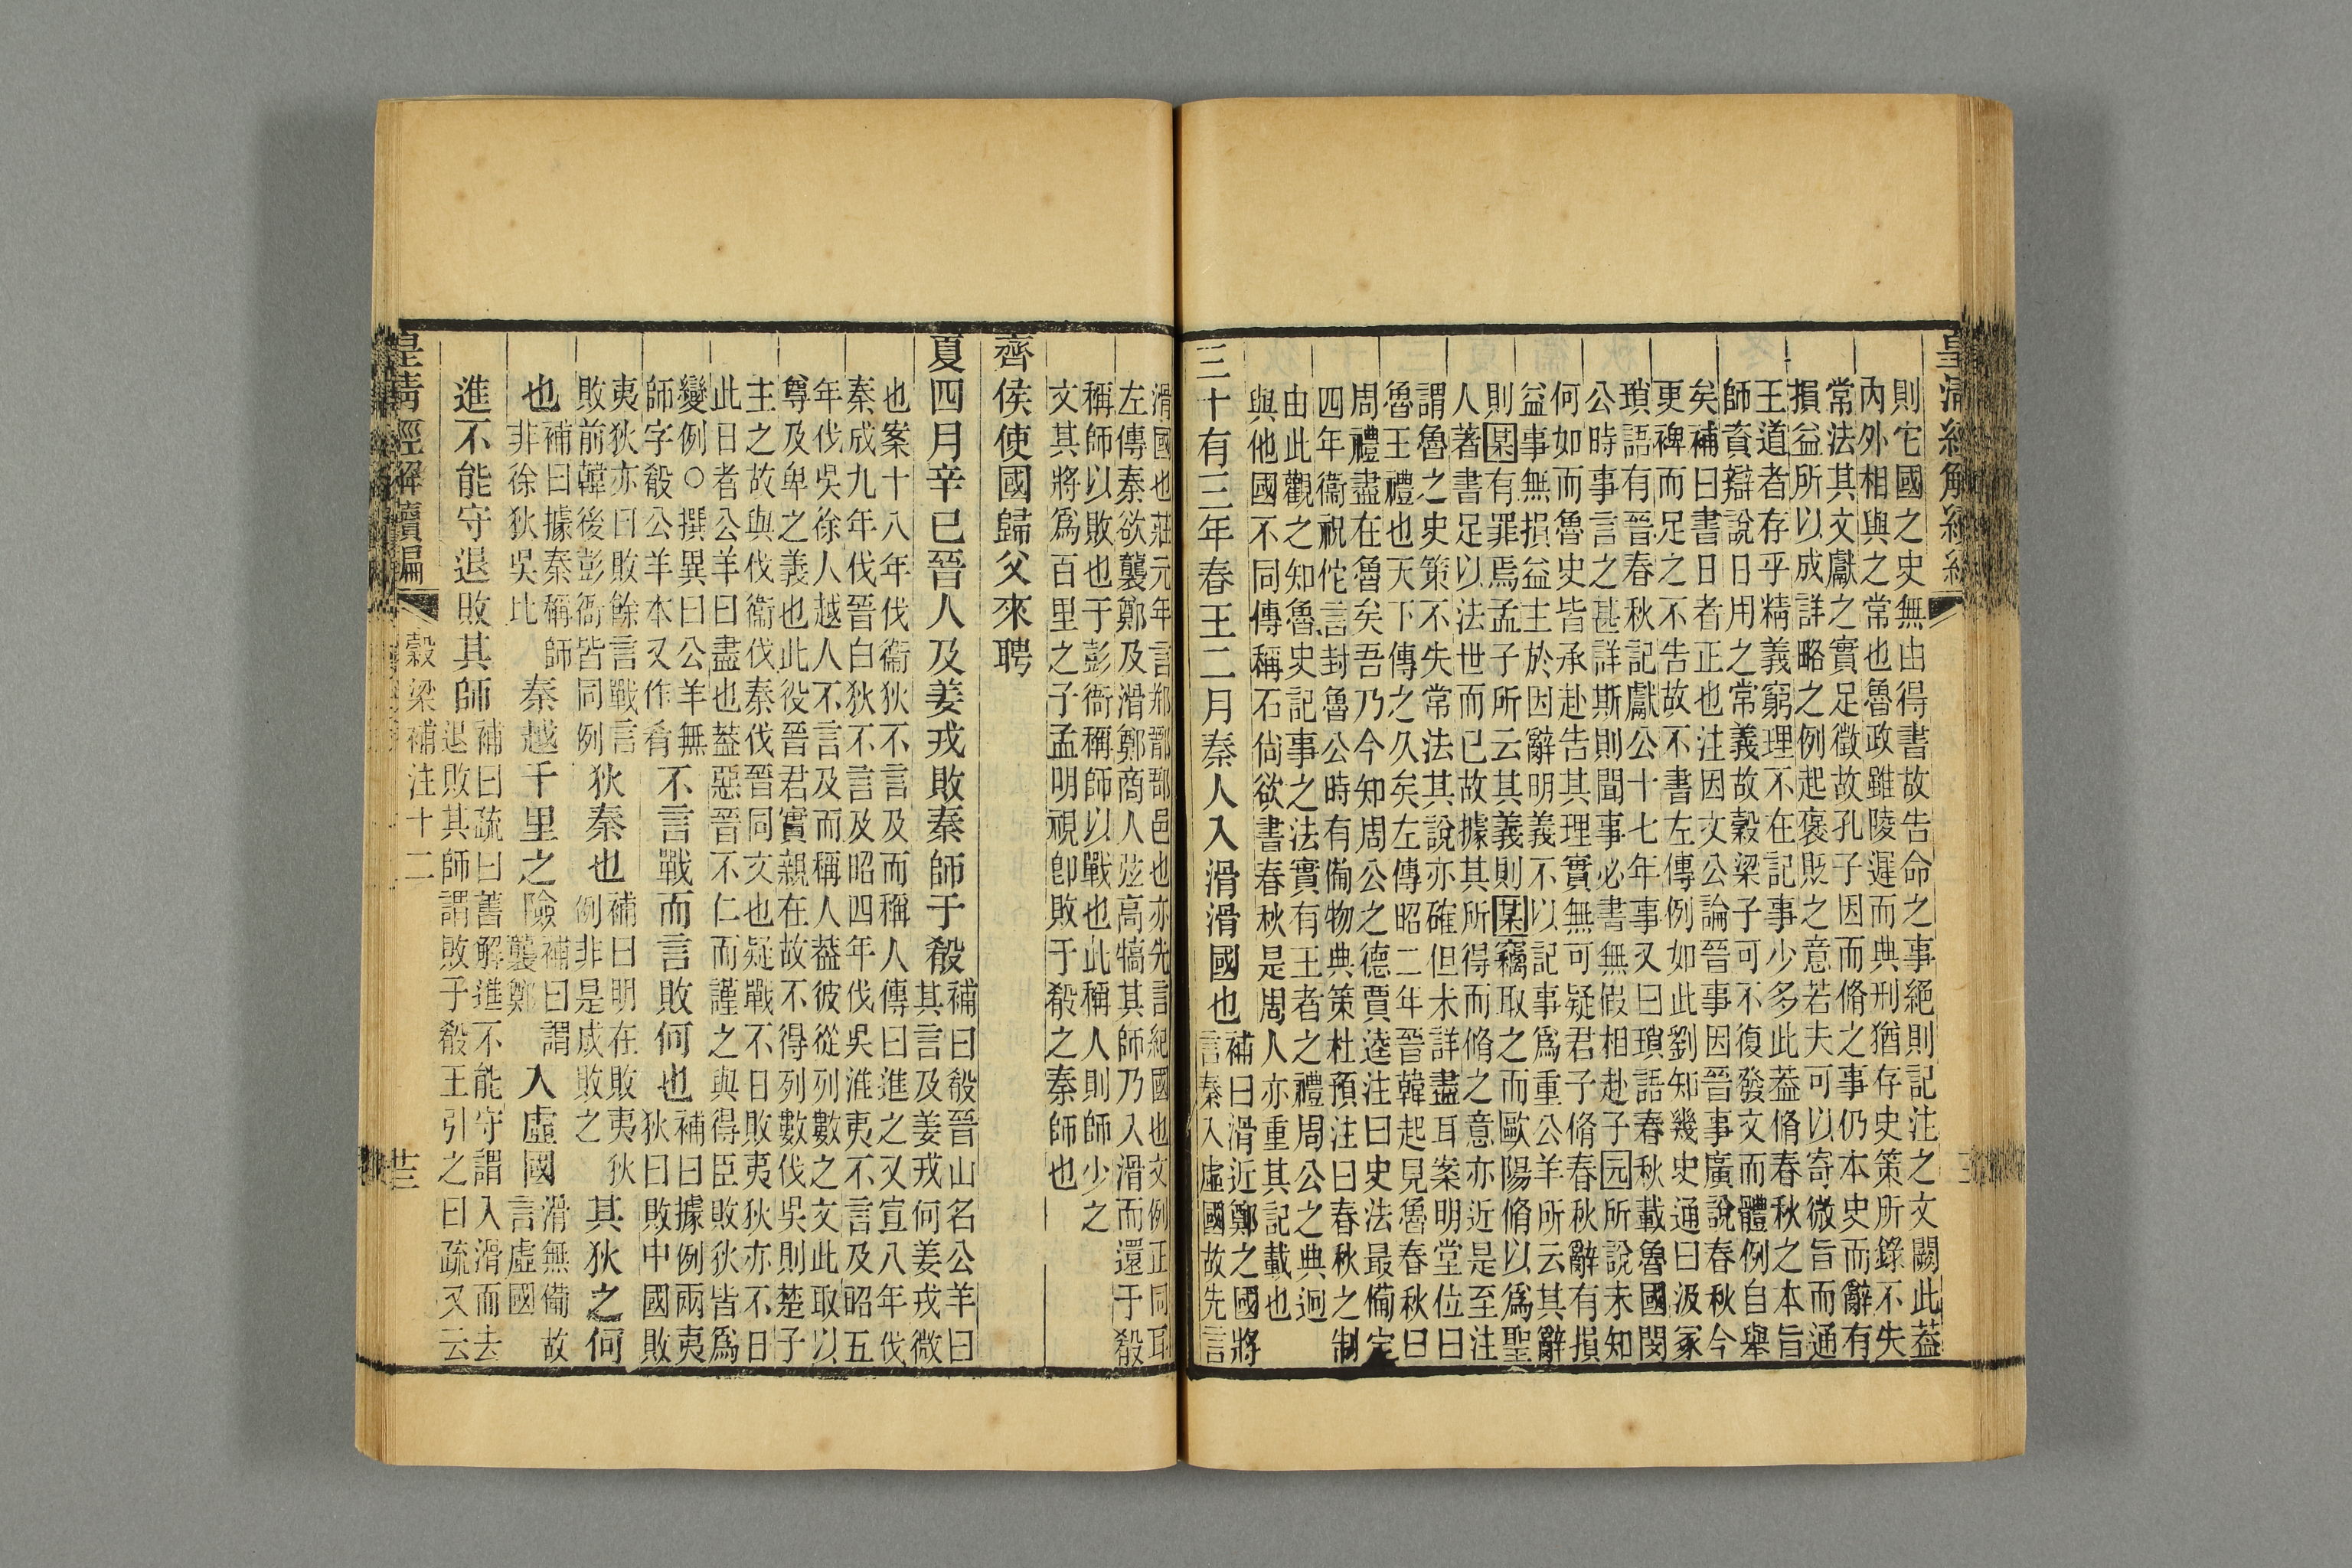 皇清經解續編
則它國之史無由得書故告命之事絕則記注之文闕此葢
內外相與之常也魯政雖陵遲而典刑猶存史策所錄不失
常法其文獻之實足徵故孔子因而脩之事仍本史而辭有
損益所以成詳略之例起褒貶之意若夫可以寄微旨而通
王道者存乎精義窮理不在記事少多此葢脩春秋之本旨
師資辯說日用之常義故穀梁子可不復發文而體例自舉
矣補曰書日者正也注因文公論晉事因晉事廣說春秋今
更裨而足之不告故不書左傳例如此劉知幾史通曰汲冢
瑣語有晉春秋記獻公十七年事又曰瑣語春秋載魯國閔
公時事言之甚詳斯則聞事必書無假相赴子园所說未知
何如而魯史皆承赴告其理實無可疑君子脩春秋辭有損
益事無損益主於因辭明義不以記事爲重公羊所云其辭
則某有罪焉孟子所云其義則某竊取之而歐陽脩以爲聖
人著書足以法世而已故據其所得而脩之意亦近是至注
謂魯之史策不失常法其說亦確但未詳盡耳案明堂位曰
魯王禮也天下傳之久矣左傳昭二年晉韓起見魯春秋曰
周禮盡在魯矣吾乃今知周公之德賈逵注曰史法最備定
四年衞祝佗言封魯公時有備物典策杜預注曰春秋之制
由此觀之知魯史記事之法實有王者之禮周公之典迥
與他國不同傳稱石尙欲書春秋是周人亦重其記載也
三十有三年春王二月秦人入滑滑國也補曰滑近鄭之國將
言秦入虛國故先言
滑國也莊元年言郱鄑郚邑也亦先言紀國也文例正同耳
左傳秦欲襲鄭及滑鄭商人弦高犒其師乃入滑而還于殽
稱師以敗也于彭衙稱師以戰也此稱人則師少之
文其將爲百里之子孟明視卽敗于殽之秦師也
齊侯使國歸父來聘
夏四月辛巳晉人及姜戎敗秦師于殽補曰殽晉山名公羊曰
其言及姜戎何姜戎微
也案十八年伐衞狄不言及而稱人傳曰進之又宣八年伐
秦成九年伐晉白狄不言及昭四年伐吳淮夷不言及昭五
年伐吳徐人越人不言及而稱人葢彼從列數之文此取以
尊及卑之義也此役晉君實親在故不得列數伐吳則楚子
主之故與伐衞伐秦伐晉同文也疑戰不日敗夷狄亦不日
此日者公羊曰盡也葢惡晉不仁而謹之與得臣敗狄皆爲
變例○撰異曰公羊無
師字殽公羊本又作肴不言戰而言敗何也補曰據例兩夷
狄曰敗中國敗
夷狄亦曰敗餘言戰言
敗前韓後彭衙皆同例狄秦也補曰明在敗夷狄
例非是成敗之其狄之何
也補曰據秦稱師
非徐狄吳比秦越千里之險補曰謂
襲鄭入虛國滑無備故
言虛國
進不能守退敗其師補曰疏曰舊解進不能守謂入滑而去
退敗其師謂敗于殽王引之曰疏又云
皇淸經解續編
穀梁補注十二